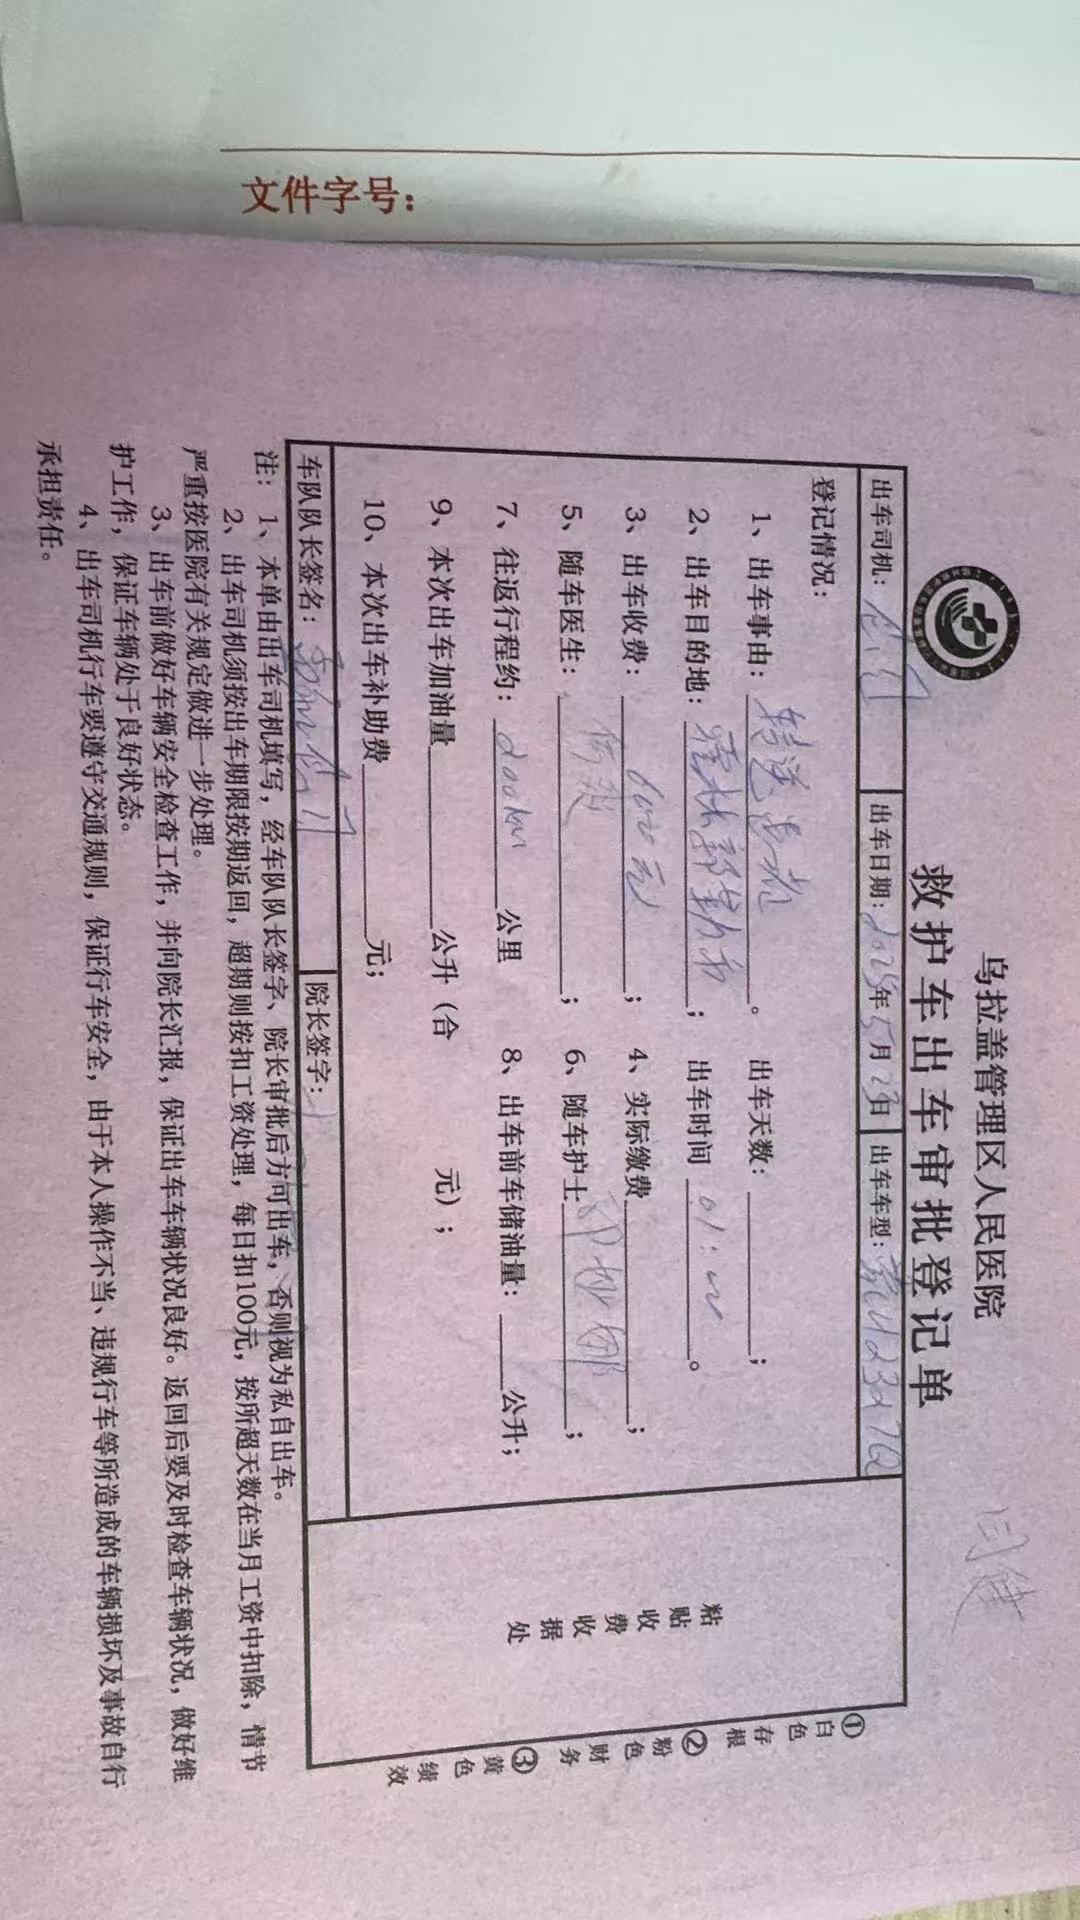 文件字号：
乌拉盖管理区人民医院
救护车出车审批登记单
出车司机： 出车日期：2025年5月23日 出车车型：
登记情况：
1、出车事由：转送患者。 出车天数：；
2、出车目的地：； 出车时间 01：00。
3、出车收费：600元； 4、实际缴费；
5、随车医生：； 6、随车护士；
7、往返行程约：200km公里 8、出车前车储油量：公升；
9、本次出车加油量公升（合 元）；
10、本次出车补助费元；
车队队长签名： 院长签字：
粘贴收费收据处
①白色存根
②粉色财务
③黄色绩效
注：1、本单由出车司机填写，经车队队长签字、院长审批后方可出车，否则视为私自出车。
2、出车司机须按出车期限按期返回，超期则按扣工资处理，每日扣100元，按所超天数在当月工资中扣除，情节
严重按医院有关规定做进一步处理。
3、出车前做好车辆安全检查工作，并向院长汇报，保证出车车辆状况良好。返回后要及时检查车辆状况，做好维
护工作，保证车辆处于良好状态。
4、出车司机行车要遵守交通规则，保证行车安全，由于本人操作不当、违规行车等所造成的车辆损坏及事故自行
承担责任。